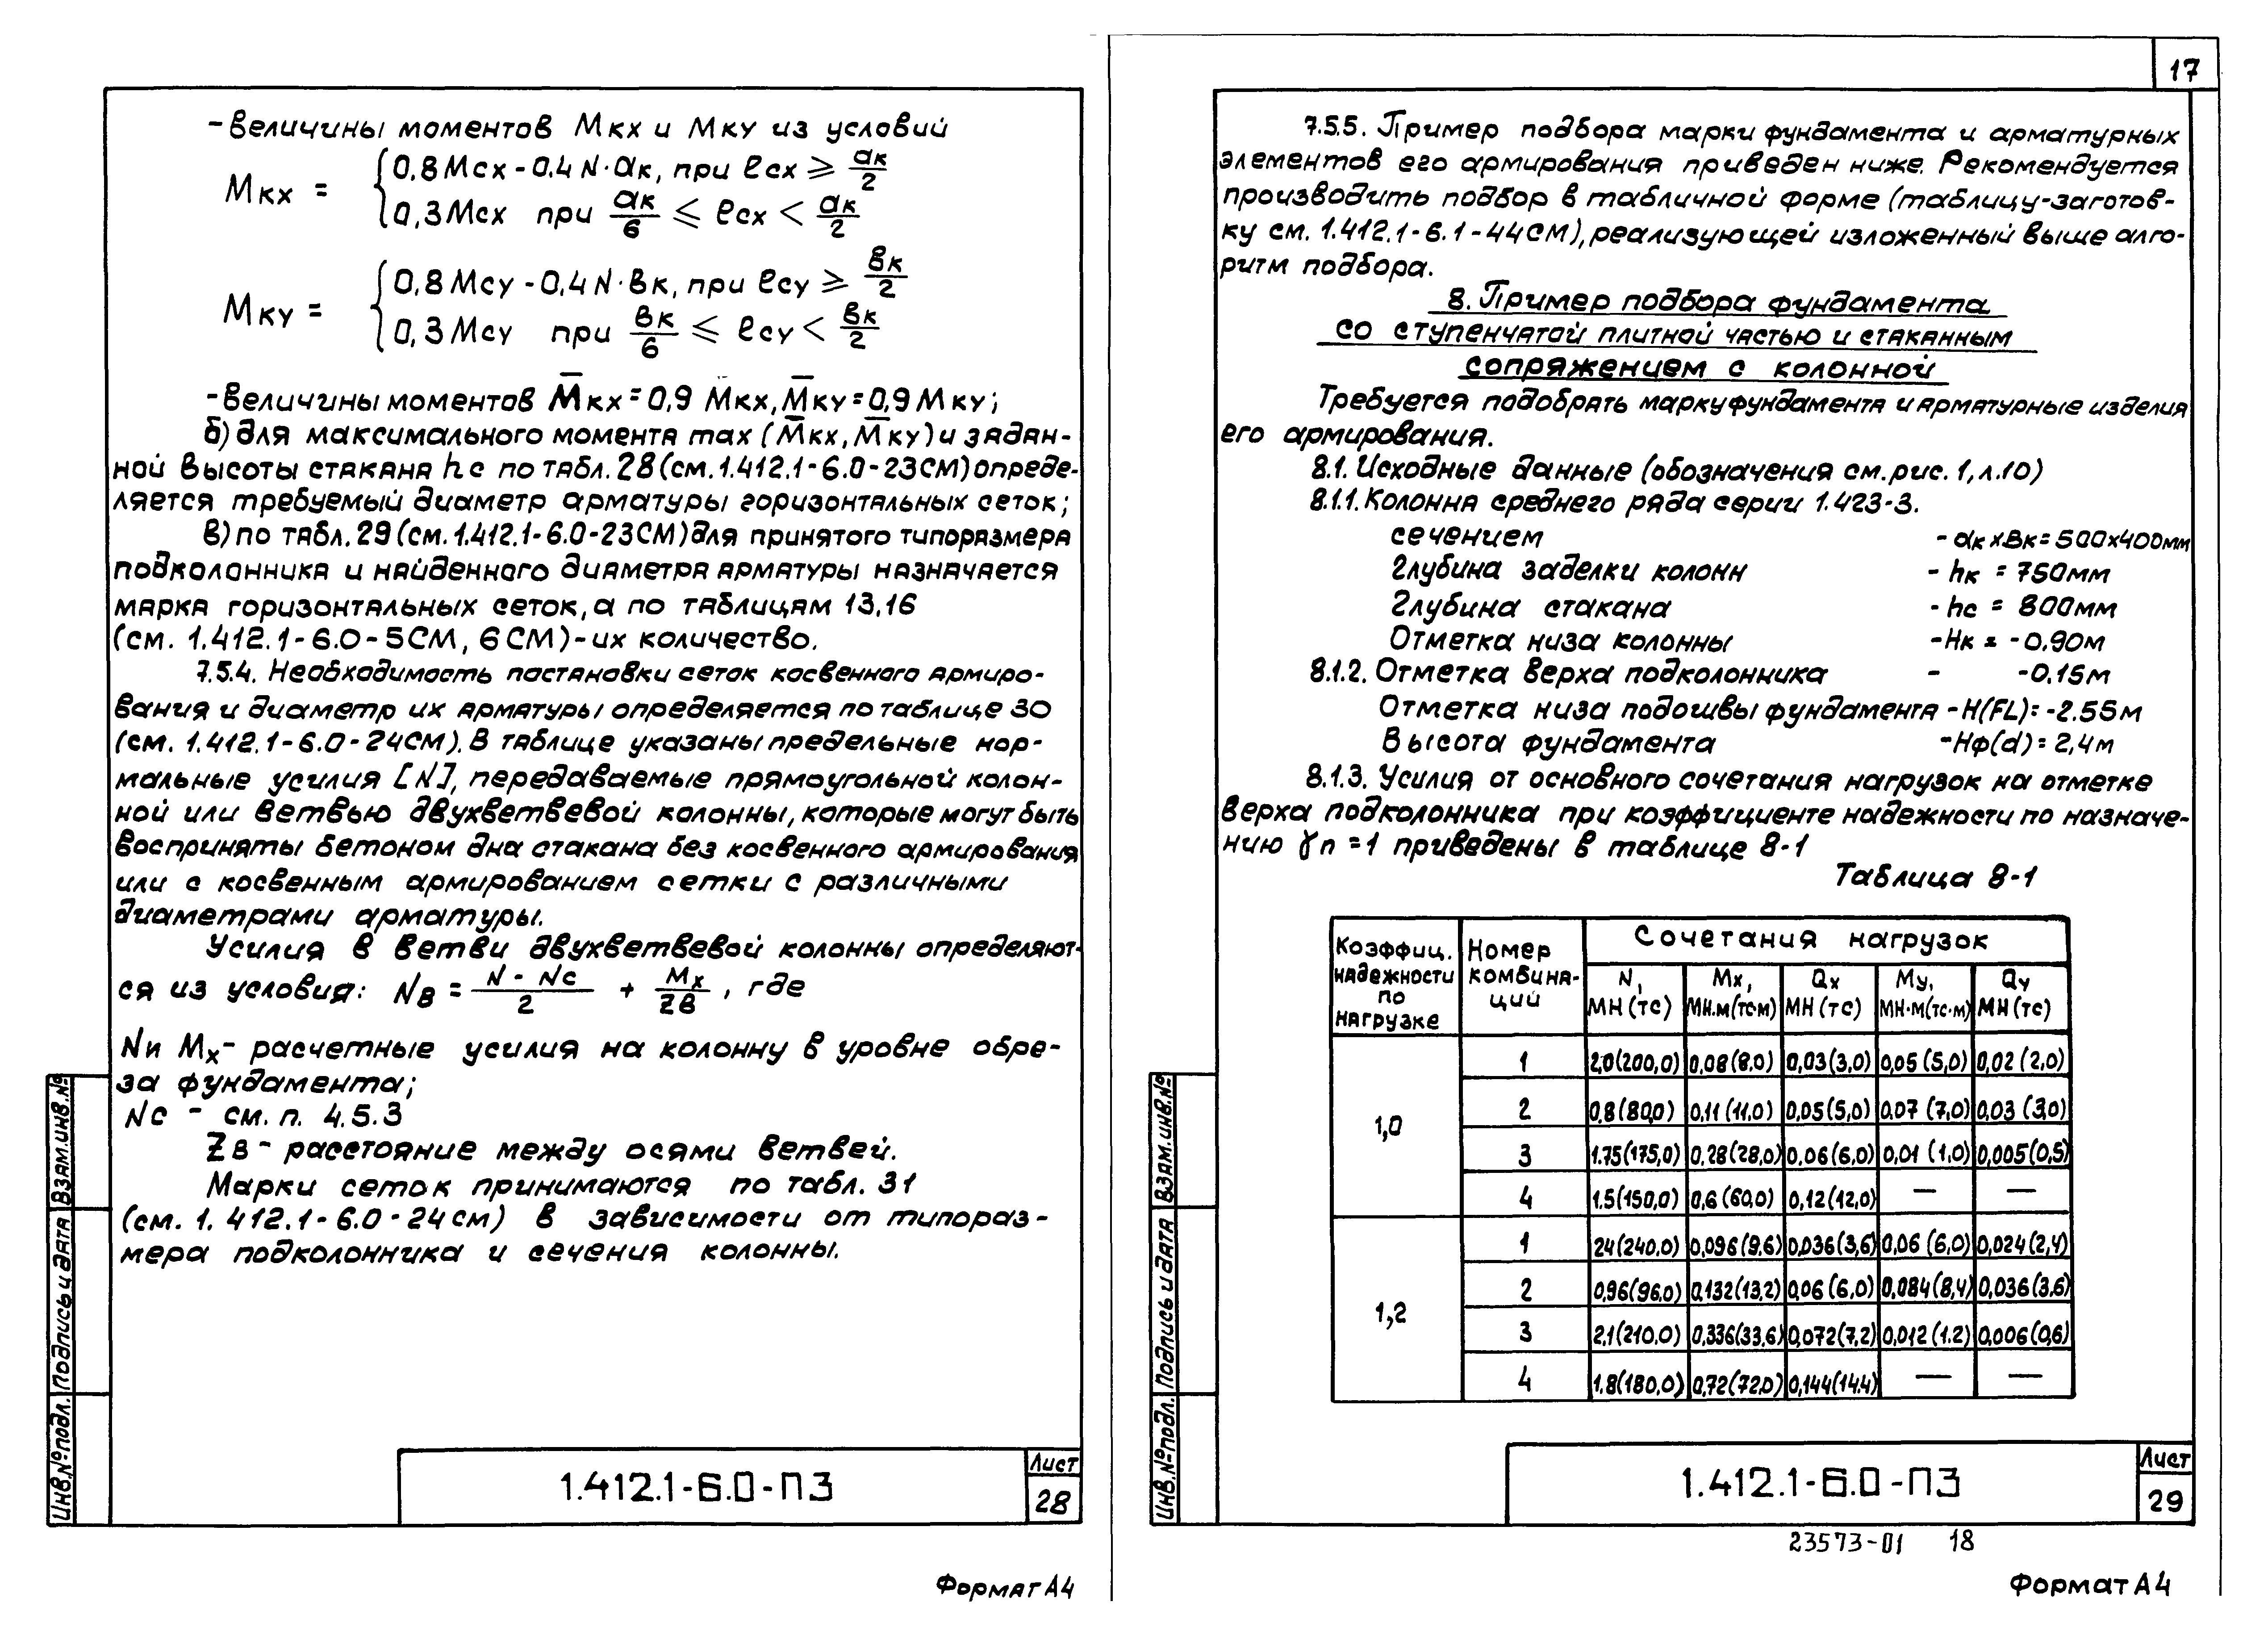 -величины моментов Мкх и Мку из условий
Мкх = { 0,8Мсх-0,4N·ак, при есх ≥ ак/2
0,3Мсх при ак/6 ≤ есх < ак/2
Мку = { 0,8Мсу-0,4N·вк, при есу ≥ вк/2
0,3Мсу при вк/6 ≤ есу < вк/2
-величины моментов M̅кх=0,9 Мкх, M̅ку=0,9Мку;
б) для максимального момента max (M̅кх, M̅ку) и задан-
ной высоты стакана hс по табл. 28 (см. 1.412.1-6.0-23СМ) опреде-
ляется требуемый диаметр арматуры горизонтальных сеток;
в) по табл. 29 (см. 1.412.1-6.0-23СМ) для принятого типоразмера
подколонника и найденного диаметра арматуры назначается
марка горизонтальных сеток, а по таблицам 13,16
(см. 1.412.1-6.0-5СМ, 6СМ)-их количество.
7.5.4. Необходимость постановки сеток косвенного армиро-
вания и диаметр их арматуры определяется по таблице 30
(см. 1.412.1-6.0-24СМ). В таблице указаны предельные нор-
мальные усилия [N], передаваемые прямоугольной колон-
ной или ветвью двухветвевой колонны, которые могут быть
восприняты бетоном дна стакана без косвенного армирования
или с косвенным армированием сетки с различными
диаметрами арматуры.
Усилия в ветви двухветвевой колонны определяют-
ся из условия: Nв = (N - Nc)/2 + Мх/Zв, где
N и Мх- расчетные усилия на колонну в уровне обре-
за фундамента;
Nc - см. п. 4.5.3
Zв - расстояние между осями ветвей.
Марки сеток принимаются по табл. 31
(см. 1.412.1-6.0-24см) в зависимости от типораз-
мера подколонника и сечения колонны.
Инв.№подл. Подпись и дата Взам.инв.№
1.412.1-6.0-ПЗ
Лист
28
Формат А4
17
7.5.5. Пример подбора марки фундамента и арматурных
элементов его армирования приведен ниже. Рекомендуется
производить подбор в табличной форме (таблицу-заготов-
ку см. 1.412.1-6.1-44СМ), реализующей изложенный выше алго-
ритм подбора.
8. Пример подбора фундамента
со ступенчатой плитной частью и стаканным
сопряжением с колонной
Требуется подобрать марку фундамента и арматурные изделия
его армирования.
8.1. Исходные данные (обозначения см. рис. 1, л.10)
8.1.1. Колонна среднего ряда серии 1.423-3.
сечением - ак х вк = 500х400мм
Глубина заделки колонн - hк = 750мм
Глубина стакана - hс = 800мм
Отметка низа колонны -Нк = -0,90м
8.1.2. Отметка верха подколонника - -0.15м
Отметка низа подошвы фундамента -Н(FL)= -2.55м
Высота фундамента -Нф(d)= 2,4м
8.1.3. Усилия от основного сочетания нагрузок на отметке
верха подколонника при коэффициенте надежности по назначе-
нию γn =1 приведены в таблице 8-1
Таблица 8-1
Коэффиц. надежности по нагрузке | Номер комбина-ций | Сочетания нагрузок
N, МН (тс) | Мх, МН.м(тс.м) | Qх МН (тс) | Му, МН·м(тс·м) | Qу МН (тс)
1,0 | 1 | 2,0(200,0) | 0,08(8,0) | 0,03(3,0) | 0,05 (5,0) | 0,02 (2,0)
2 | 0,8(80,0) | 0,11 (11,0) | 0,05(5,0) | 0,07 (7,0) | 0,03 (3,0)
3 | 1.75(175,0) | 0,28(28,0) | 0,06(6,0) | 0,01 (1,0) | 0,005(0,5)
4 | 1.5(150,0) | 0,6 (60,0) | 0,12(12,0) | — | —
1,2 | 1 | 24(240.0) | 0,096(9,6) | 0,036(3,6) | 0,06 (6,0) | 0,024(2,4)
2 | 0,96(96,0) | 0,132(13,2) | 0,06 (6,0) | 0,084(8,4) | 0,036(3,6)
3 | 2,1(210,0) | 0,336(33,6) | 0,072(7,2) | 0,012 (1.2) | 0,006(0,6)
4 | 1.8(180,0) | 0,72(72,0) | 0,144(14.4) | — | —
Инв.№подл. Подпись и дата Взам.инв.№
1.412.1-6.0-ПЗ
Лист
29
23573-01 18
Формат А4